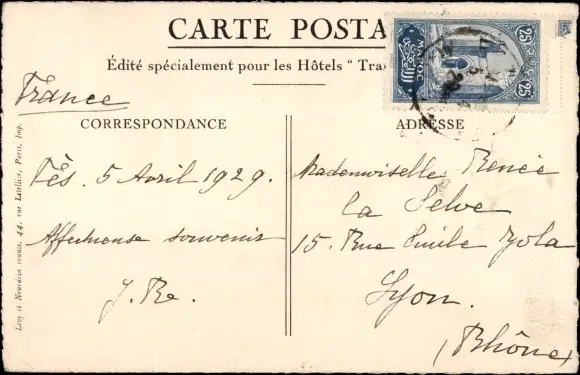 CARTE POSTA
Édité spécialement pour les Hôtels " Tra
25 25
MAROC
France
CORRESPONDANCE
Fès. 5 Avril 1929.
Affectueuse souvenir
J. Re.
ADRESSE
Mademoiselle Renée
la Selve
15. Rue Emile Zola
Lyon.
(Rhône)
Levy et Neurdein réunis, 44, rue Letellier, Paris, Imp.